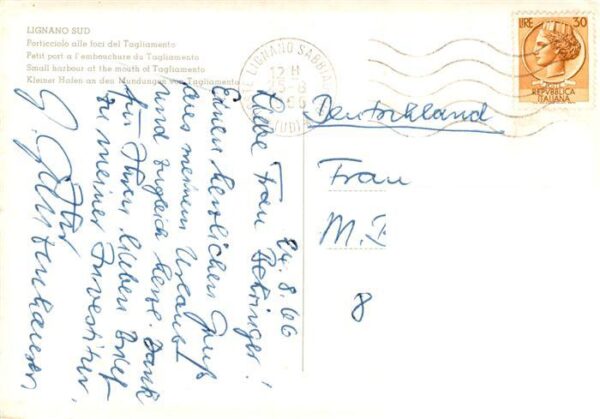 LIGNANO SUD
Porticciolo alle foci del Tagliamento
Petit port a l'embouchure du Tagliamento
Small harbour at the mouth of Tagliamento
Kleiner Hafen an den Mundungen von Tagliamento
LIGNANO SABBIA
12 H
(UD)
LIRE 30
POSTE
REPVBBLICA
ITALIANA
24.8.66
Liebe Frau Behringer!
Einen herzlichen Gruß
aus meinem Urlaub
und zugleich herzl. Dank
für Ihren lieben Brief
zu meiner Investitur.
Ihr
G.
Deutschland
Frau
M. B
8